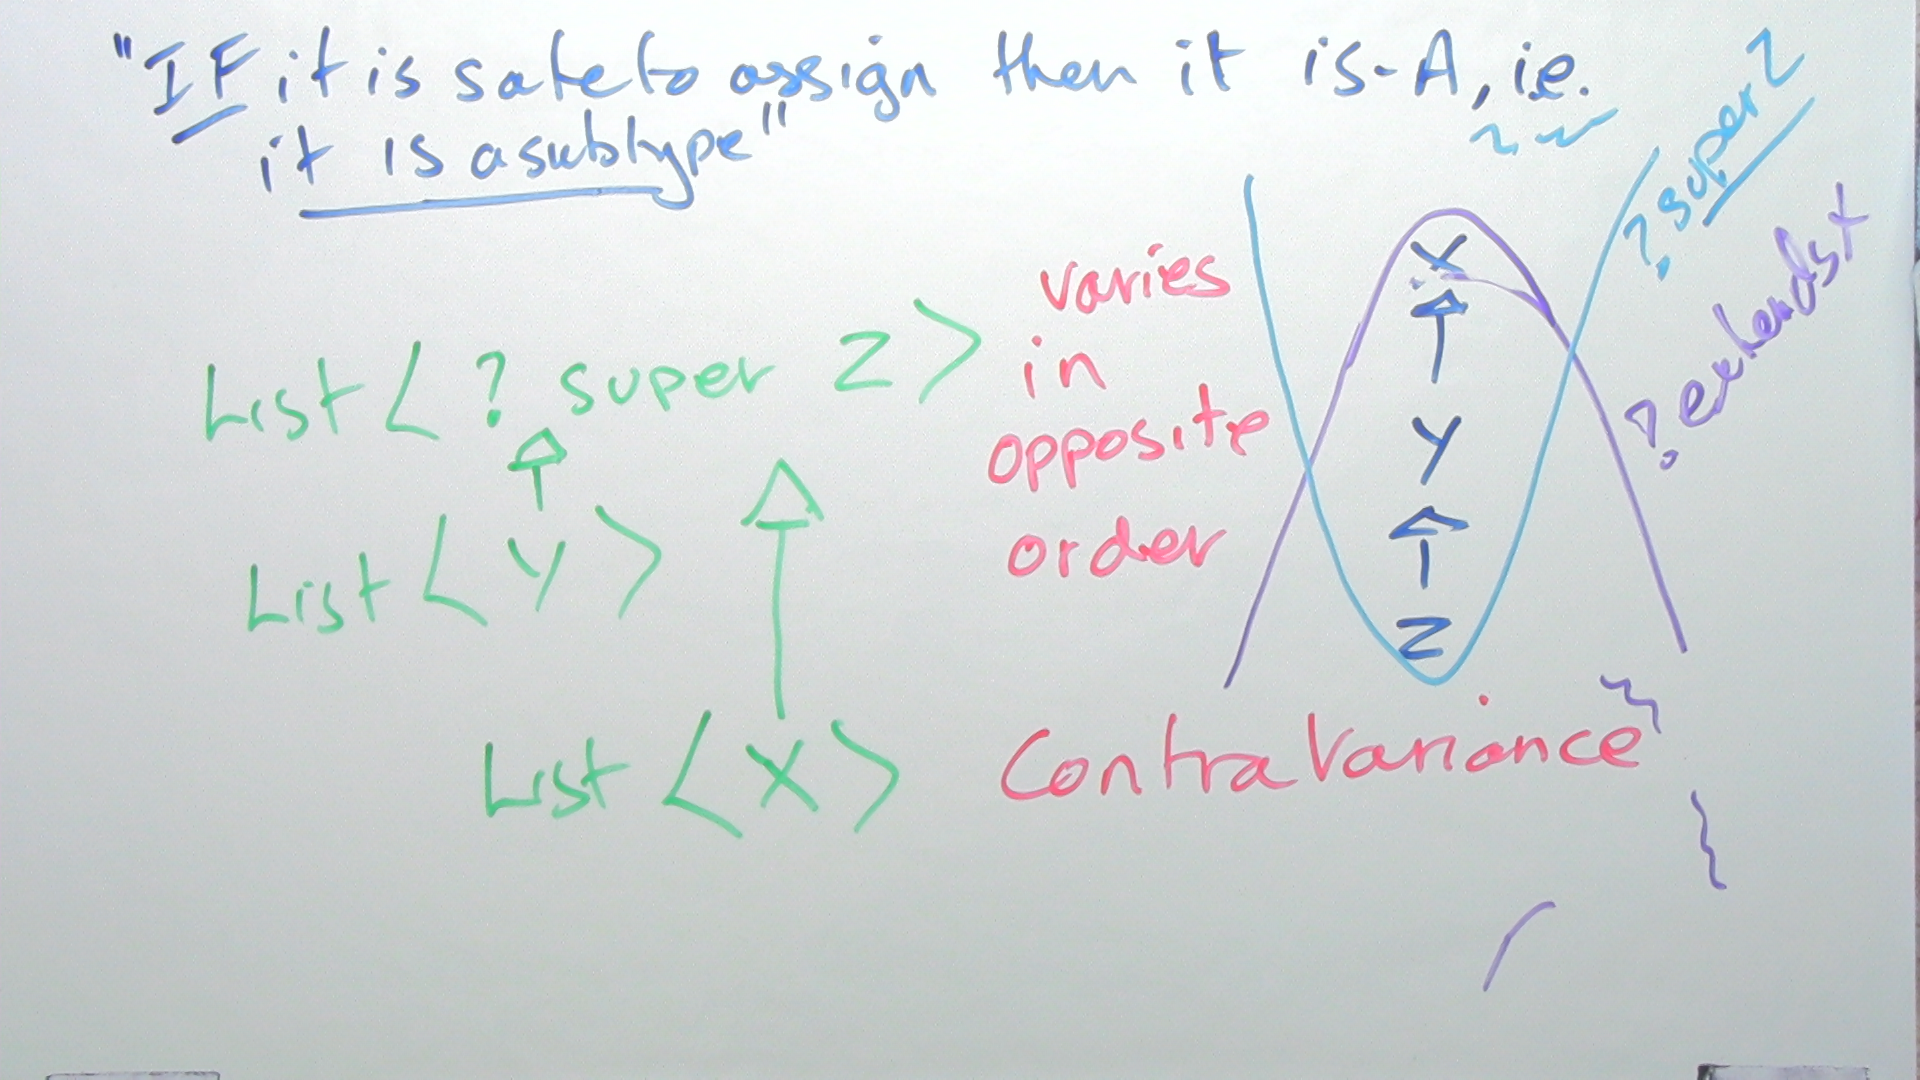 "IF it is safe to assign then it is-A, i.e.
it is a subtype"
List < ? super Z >
List < Y >
List < X >
varies
in
opposite
order
ContraVariance
X
Y
Z
? super Z
? extends X